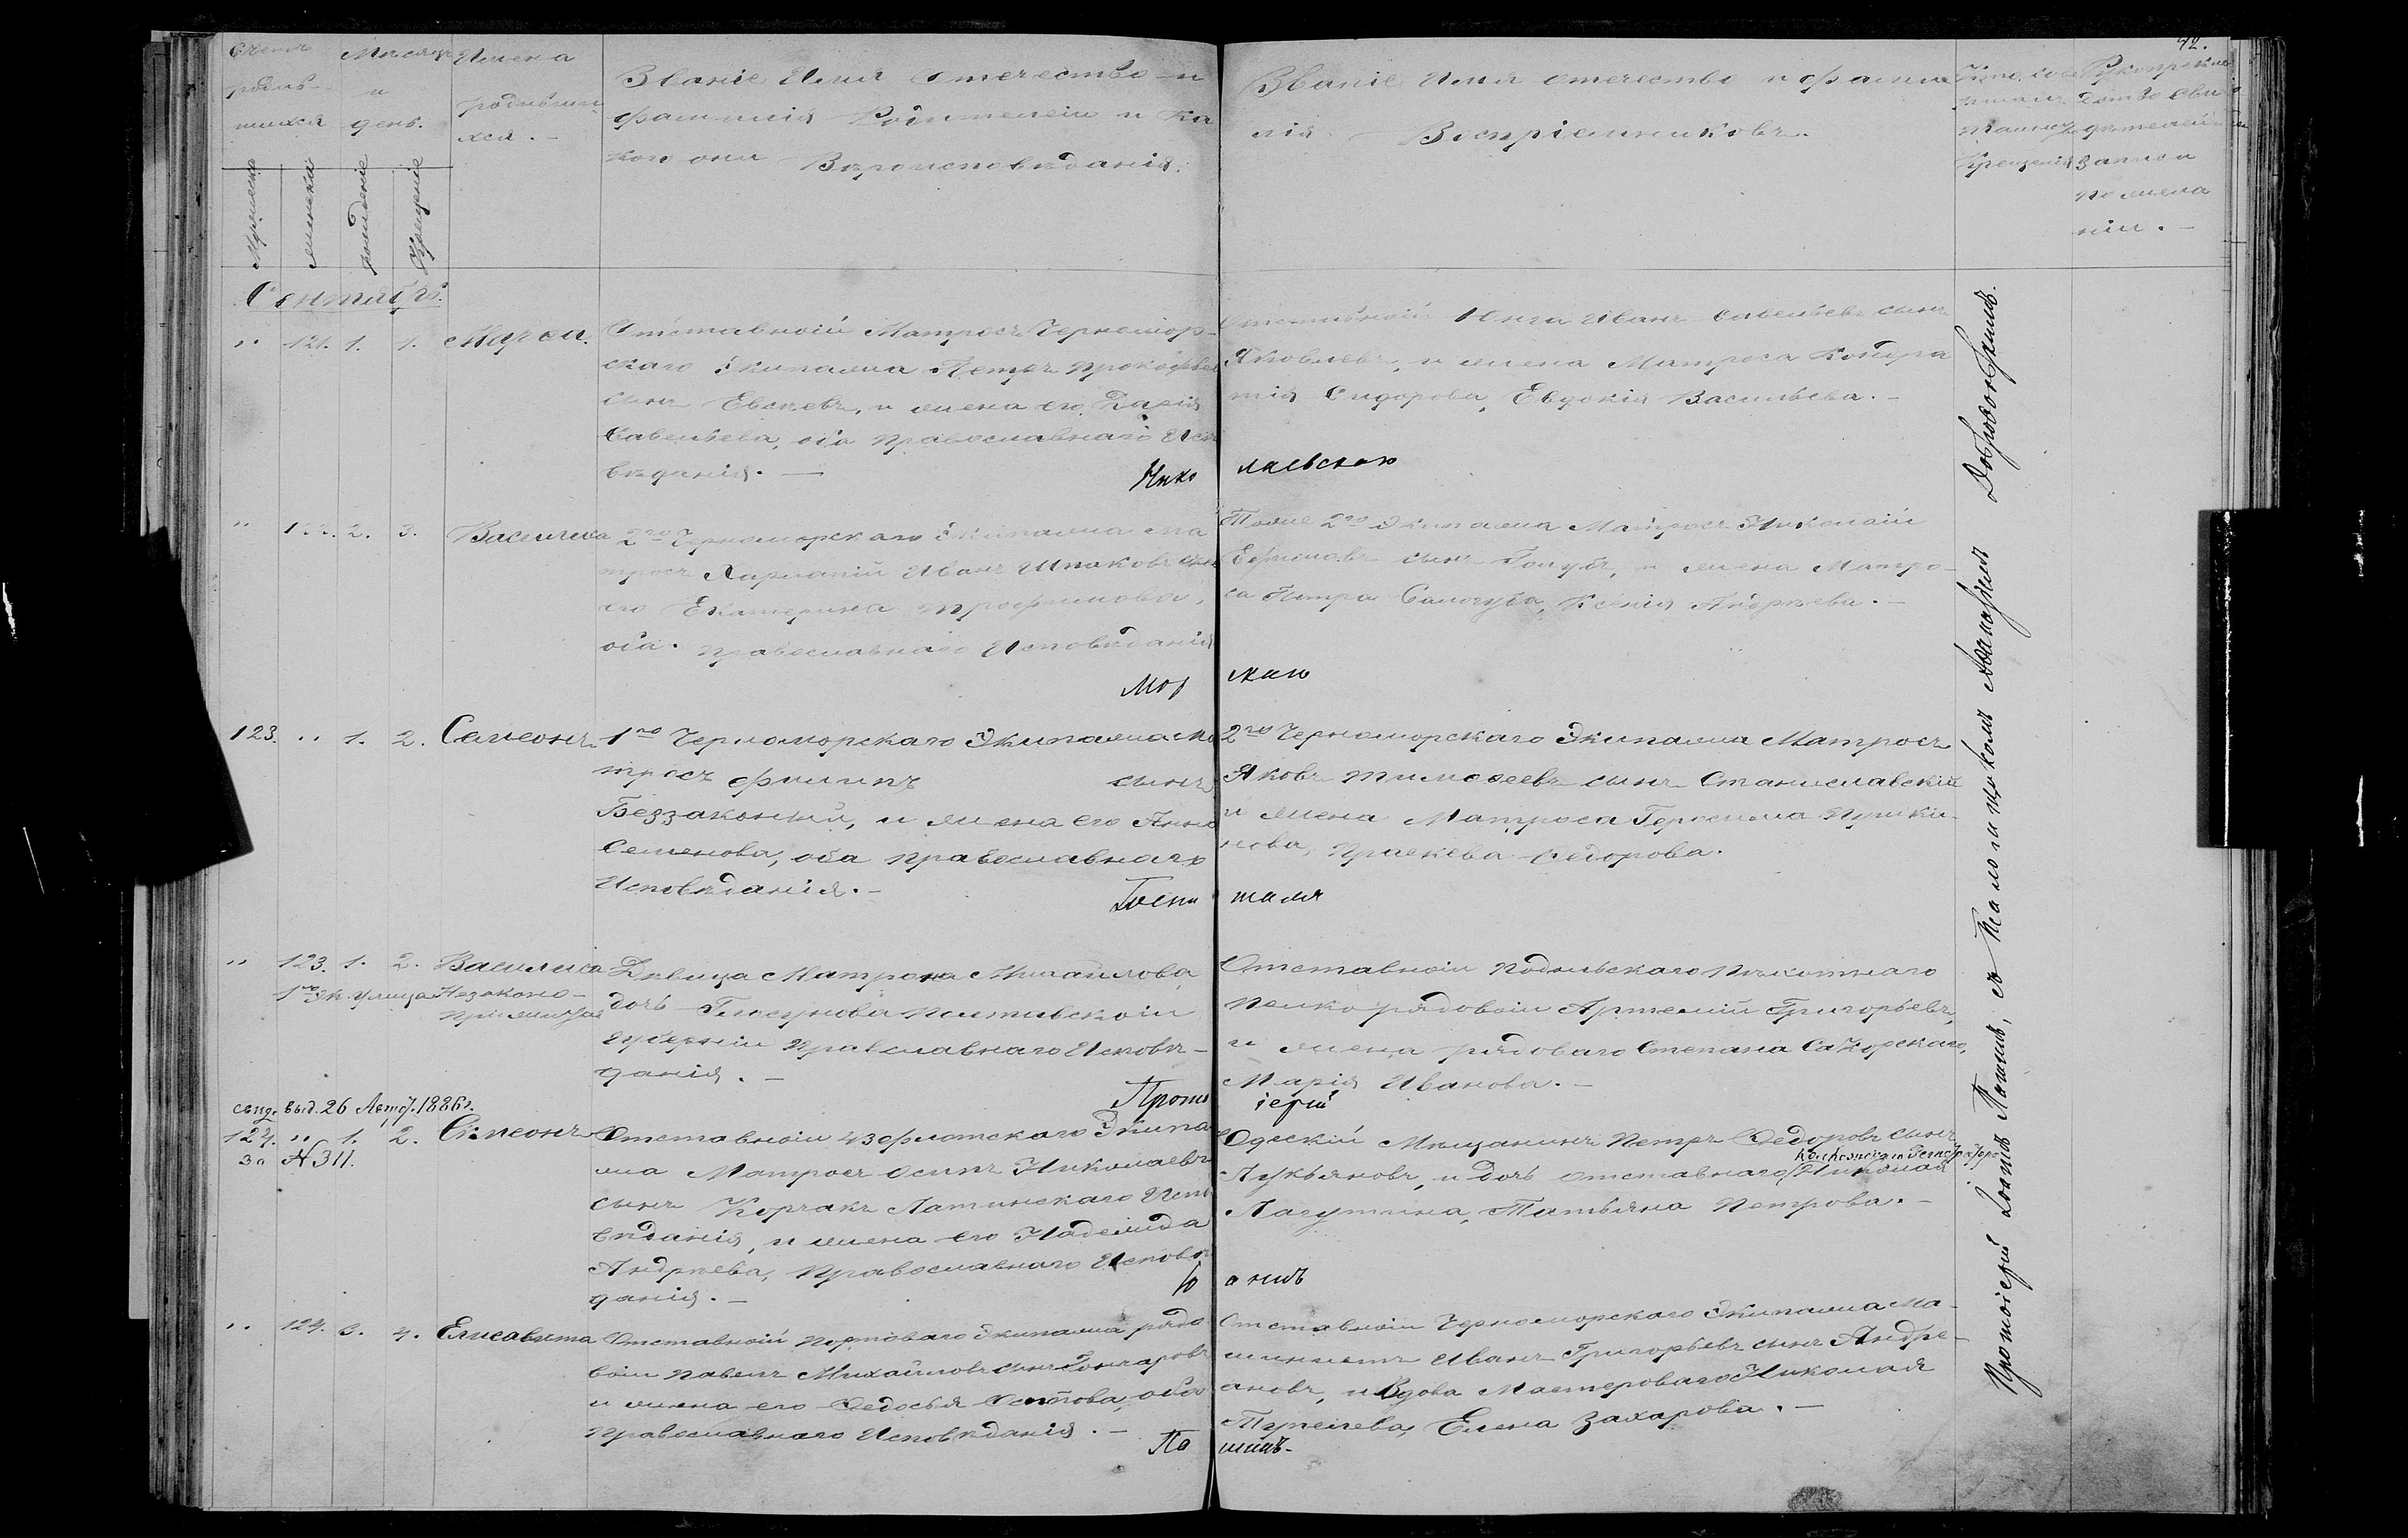 42.
Счетъ родив- шихся
Мѣсяцъ и день.
Имена родивши хся. —
Званіе Имя Отечество и
фамилія Родителей и ка
кого они Вѣроисповѣданія.
Званіе Имя отечество и фами
лія Воспріемниковъ.
Крещенія
Рукоприклад
ство сви
дѣтелей
записи
по жела
нію. —
Мужеска
женска
рожденіе
Крещеніе
Сентябрь.
„ 121. 1. 1. Марѳа.
Отставной Матросъ Черномор-
скаго Экипажа Петръ Прокофьев
сынъ Евсѣевъ, и жена его Дарія
Савельева, оба православнаго Испо
вѣданія. —
Отставной Юнга Иванъ Савельевъ сынъ
Яковлевъ, и жена Матроса Кондра
тія Сидорова, Евдокія Васильева. —
Нико лаевскою
„ 122. 2. 3. Василиса
2го Черноморскаго Экипажа ма
тросъ Иванъ Шпаковъ жена
его Екатерина Трофимова,
оба православнаго Исповѣданія
Тогоже 2го Экипажа Матросъ Николай
Ефимовъ сынъ Голубъ, и жена Матро-
са Петра Самогуба, Ксенія Андреева. —
Мор скаго
123. „ 1. 2. Симеонъ
1го Черноморскаго Экипажа Ма
тросъ Филипъ сынъ
Беззаконный, и жена его Анна
Семенова, оба православнаго
Исповѣданія. —
2го Черноморскаго Экипажа Матросъ
Яковъ Тимофеевъ сынъ Станиславскій
и жена Матроса Герасима Пушки-
нова, Праскева Федорова.
Госпи таля
„ 123. 1. 2. Василиса
1го Эк. улица Незаконо-
прижитая
Дѣвица Матрона Михайлова
дочь Полтавской
губерніи православнаго Исповѣ-
данія. —
Отставной Подольскаго Пѣхотнаго
полка рядовой Артемій Григорьевъ,
и жена рядоваго Степана Сакорскаго,
Марія Иванова. —
Прото іерей
свид. выд. 26 Авг. 1886г.
за № 311.
124. „ 1. 2. Симеонъ
Отставной 43 флотскаго Экипа
жа Матросъ Осипъ Николаевъ
сынъ Корчакъ Латинскаго Испо
вѣданія, и жена его Надежда
Андреева, Православнаго Исповѣ
данія. —
Одескій Мѣщанинъ Петръ Федоровъ сынъ
Лукьяновъ, и дочь отставнаго Николая
Лагутина, Татьяна Петрова. —
Іо аннъ
„ 124. 3. 4. Елисавета
Отставной портоваго Экипажа рядо
вой Павелъ Михайловъ сынъ Гончаровъ
и жена его Федосья Осипова, оба
православнаго Исповѣданія. —
Отставной Черноморскаго Экипажа Ма-
шинистъ Иванъ Григорьевъ сынъ Андре-
ановъ, и Вдова Мастероваго Николая
Елена Захарова. —
По шинъ.
Протоіерей Іоаннъ Пошинъ, съ